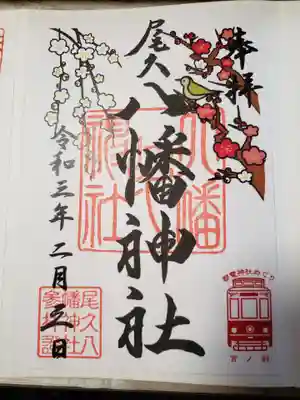 奉拝
尾久八幡神社
八幡神社
令和三年二月三日
尾久八幡神社参拝証
都電神社めぐり
宮ノ前